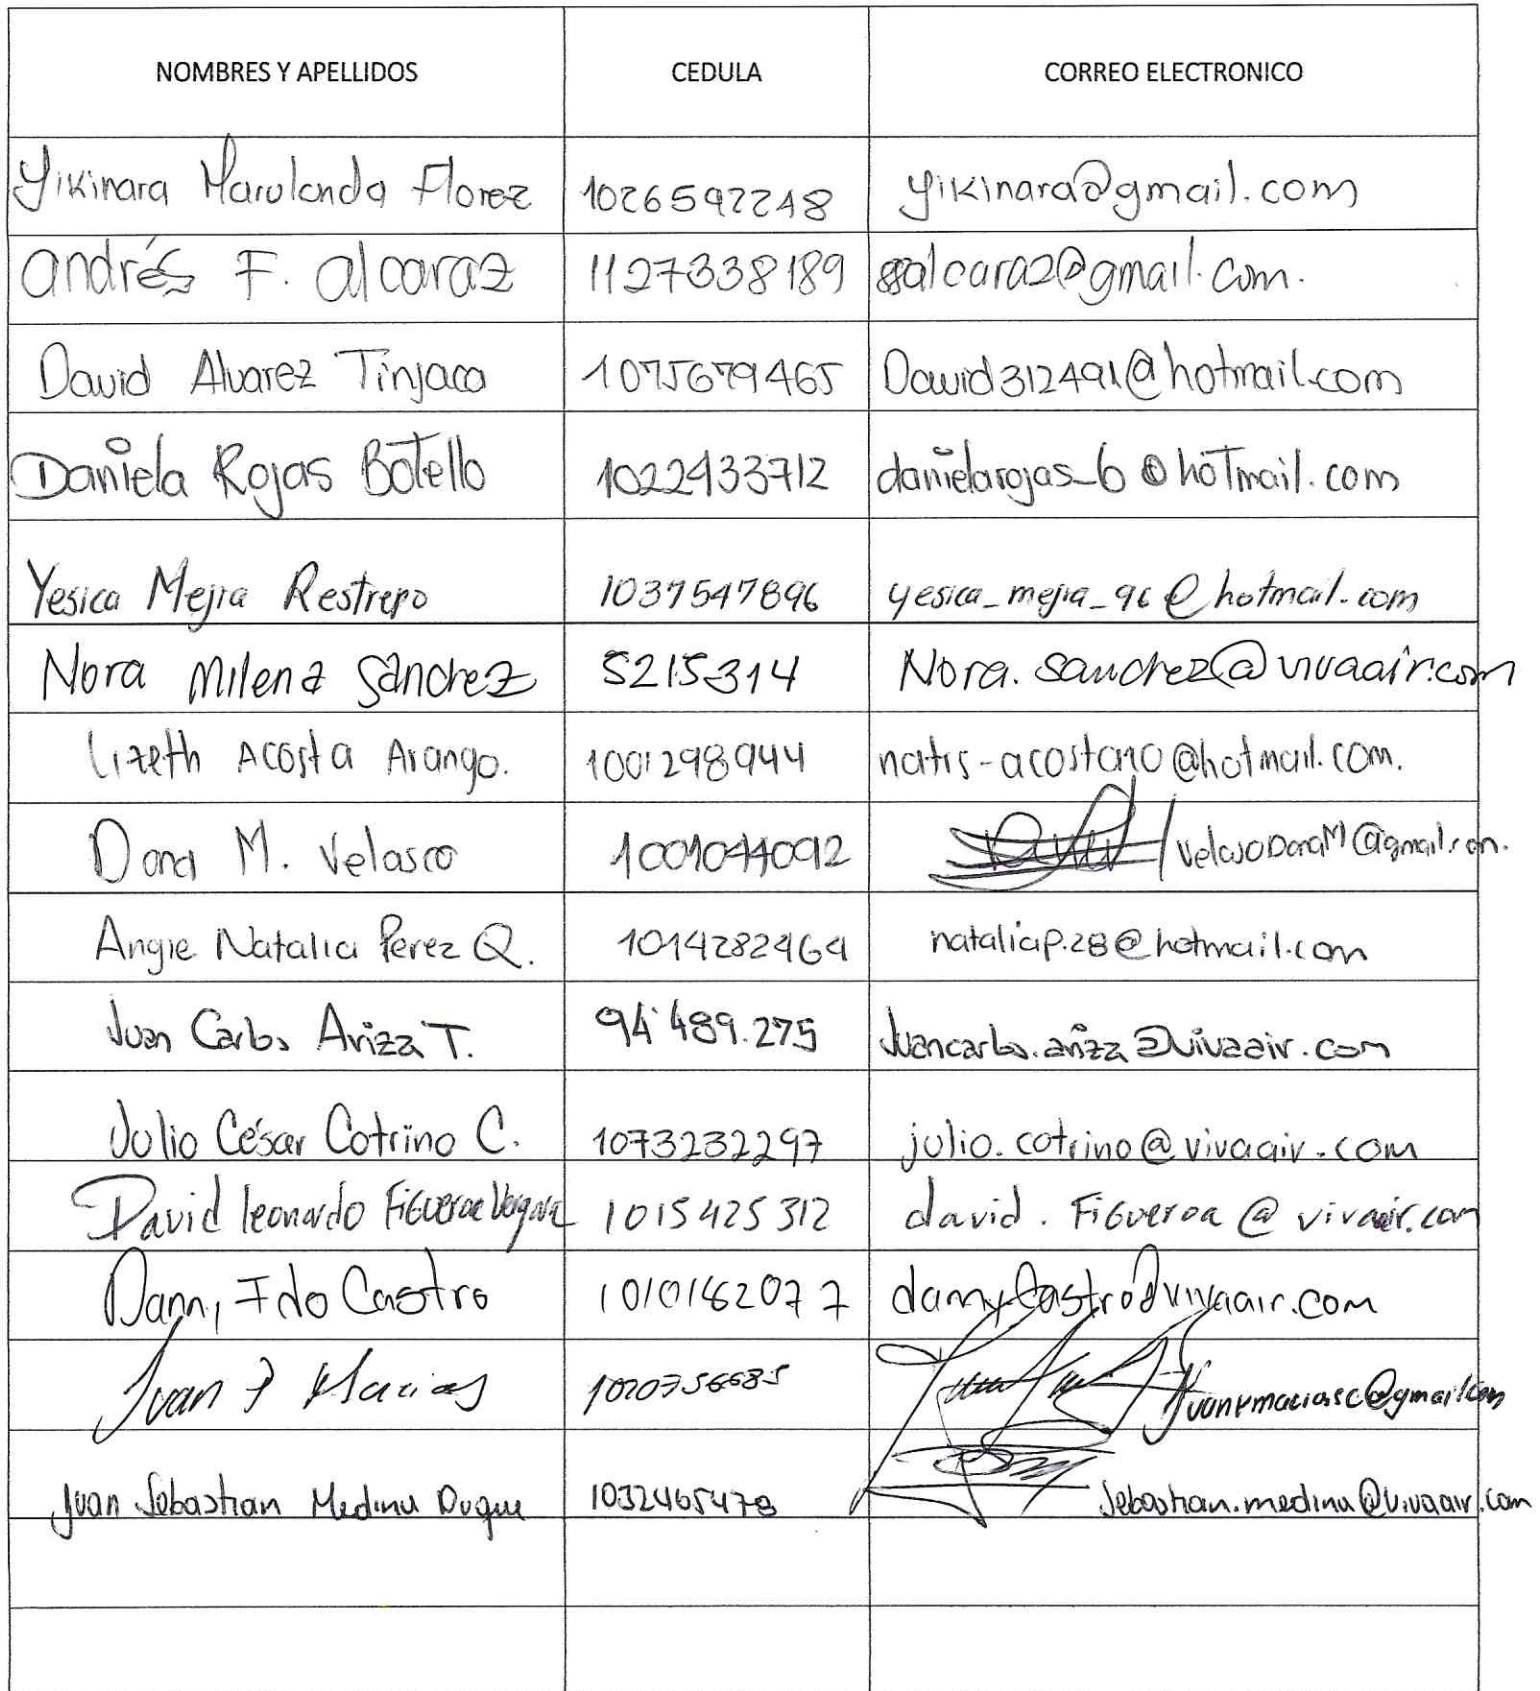 NOMBRES Y APELLIDOS CEDULA CORREO ELECTRONICO
Yikinara Marulanda Florez 1026592248 yikinara@gmail.com
Andrés F. Alcaraz 1127338189 @gmail.com.
David Alvarez Tinjaca 1075679465 David312491@hotmail.com
Daniela Rojas Botello 1022933712 danielarojas_6@hotmail.com
Yesica Mejia Restrepo 1037547896 yesica_mejia_96@hotmail.com
Nora Milena Sánchez 5215314 Nora.sanchez@vivaair.com
Lizeth Acosta Arango. 1001298944 natis-acosta10@hotmail.com.
Dana M. Velasco 1001044092 VelascoDanaM@gmail.com.
Angie Natalia Perez Q. 1014282464 nataliap.28@hotmail.com
Juan Carlos Ariza T. 94'489.275 Juancarlos.ariza@vivaair.com
Julio César Cotrino C. 1073232297 julio.cotrino@vivaair.com
David Leonardo Figueroa Vergara 1015425312 david.Figueroa@vivaair.com
Danny Fdo Castro 1010162077 danny.castro@vivaair.com
Juan F Macias
Juan Sebastian Medina Duque 1032465478 Sebastian.medina@vivaair.com